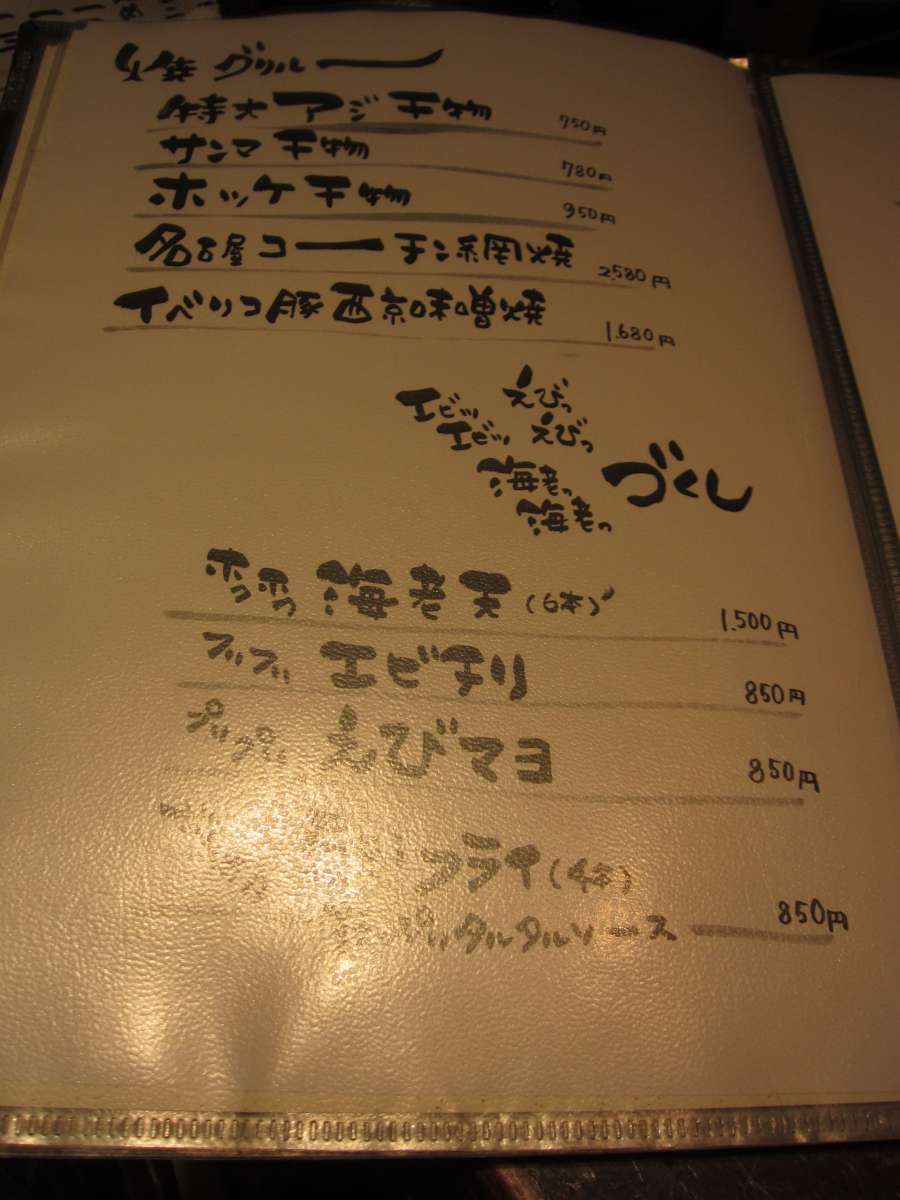 火焼 グリルー
特大アジ干物 750円
サンマ干物 780円
ホッケ干物 950円
名古屋コーチン網焼 2,580円
イベリコ豚西京味噌焼 1,680円
えびっ
エビッ
エビッ えびっ
海老っ づくし
海老っ
ホクホク 海老天(6本) 1,500円
プリプリ エビチリ 850円
プリプリ えびマヨ 850円
フライ(4本)
タルタルソース 850円